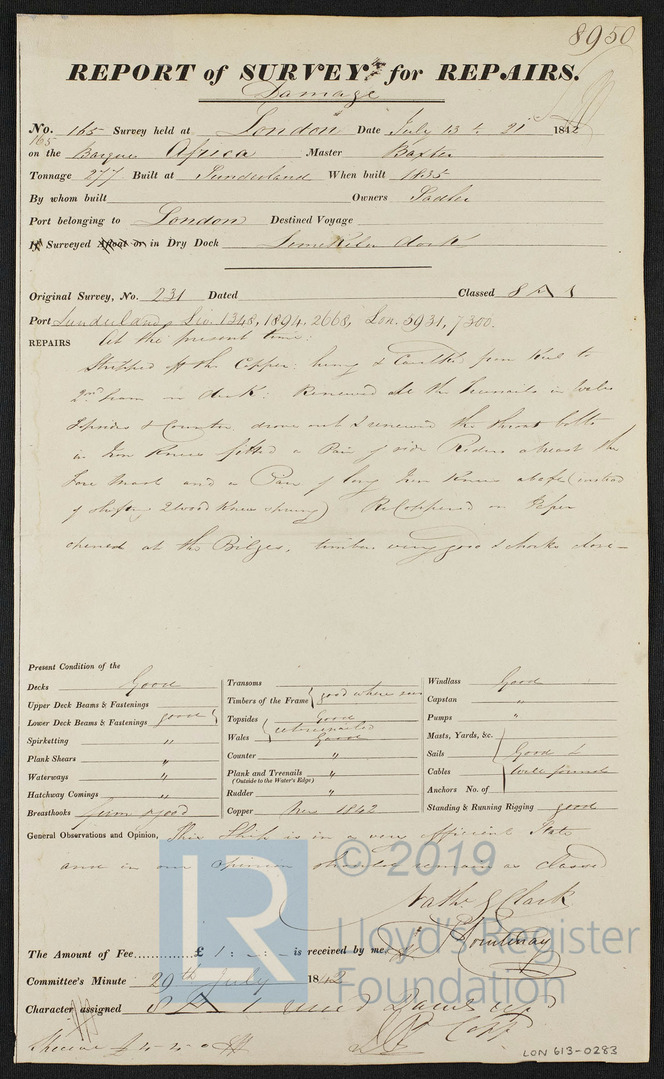 8950
REPORT of SURVEY for REPAIRS.
Damage
No. 165 Survey held at London Date July 13 & 21 1842
165
on the Barque Africa Master Baxter
Tonnage 277 Built at Sunderland When built 1835
By whom built Owners Sadler
Port belonging to London Destined Voyage
If Surveyed Afloat or in Dry Dock Limekiln dock
Original Survey, No. 231 Dated Classed 8 A 1
Port Sunderland, Liv. 1348, 1894, 2668, Lon. 5931, 7300.
REPAIRS At the present time:
Stripped off the Copper; & Caulked from Keel to
2nd seam in deck: Renewed all the Treenails in Wales
Topsides & Counter, drove out & renewed the throat bolts
in Iron Knees fitted a Pair of side Riders abreast the
Fore Mast and a Pair of long Iron Knees (instead
of 2 wood Knees sprung) ReCoppered on
opened at the Bilges, timbers very good & chocks close
Present Condition of the
Decks Good
Upper Deck Beams & Fastenings
Lower Deck Beams & Fastenings good
Spirketting "
Plank Shears "
Waterways "
Hatchway Comings "
Breasthooks firm & good
Transoms
Timbers of the Frame good where seen
Topsides Good
retreenailed
Wales Good
Counter "
Plank and Treenails "
(Outside to the Water's Edge)
Rudder "
Copper New 1842
Windlass Good
Capstan "
Pumps "
Masts, Yards, &c.
Sails Good &
Cables well found
Anchors No. of
Standing & Running Rigging good
General Observations and Opinion, This Ship is in a very efficient State
and in our opinion should remain as classed
Nathl G Clark
The Amount of Fee £ 1 : - : - is received by me, P Courtenay
Committee's Minute 29th July 1842
Character assigned 8 A 1
Special £ 4-4-0
LR © 2019
Lloyd's Register
Foundation
LON 613-0283